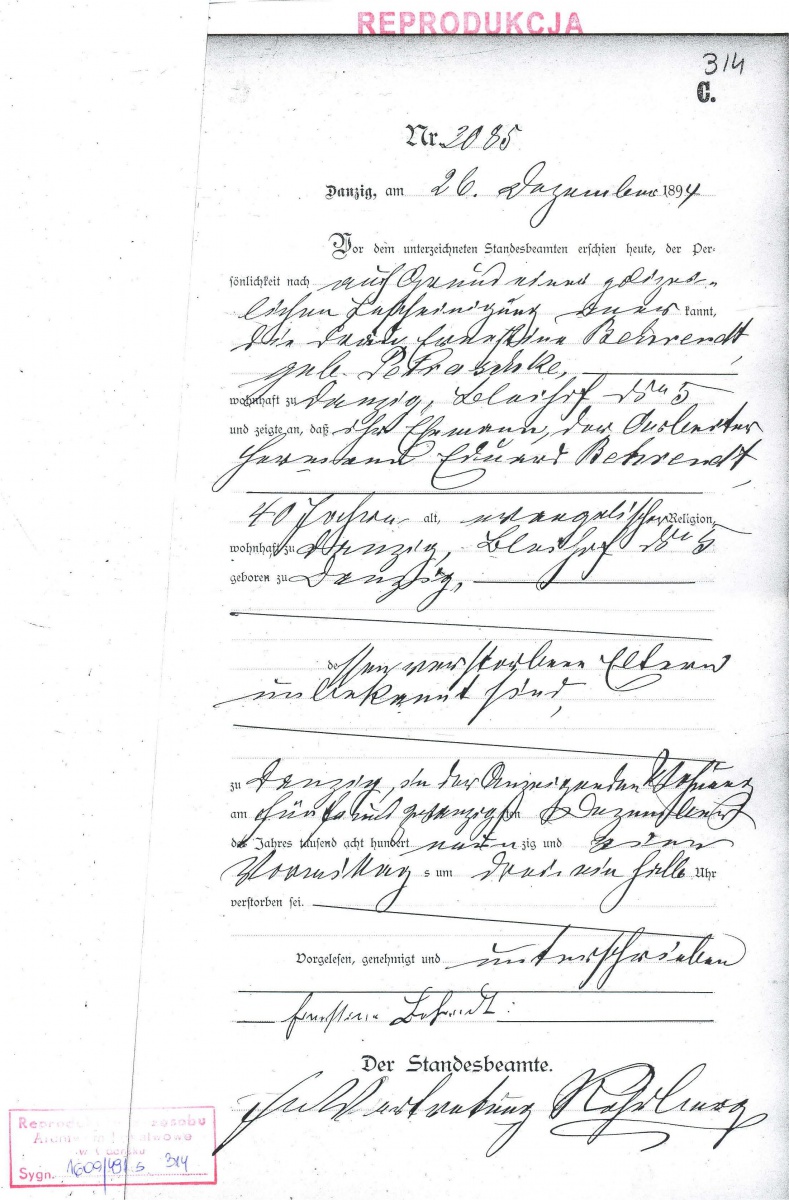 REPRODUKCJA
314
C.
Nr. 2085
Danzig, am 26. Dezember 1894
Vor dem unterzeichneten Standesbeamten erschien heute, der Per-
sönlichkeit nach auf Grund einer polizei-
lichen Bescheinigung aner kannt,
die Frau Ernestine Behrendt,
geb. Petraschke,
wohnhaft zu Danzig, Bleihof No 5
und zeigte an, daß ihr Ehemann, der Arbeiter
Hermann Eduard Behrendt,
40 Jahre alt, evangelischer Religion,
wohnhaft zu Danzig, Bleihof No 5
geboren zu Danzig,
dessen verstorbene Eltern
unbekannt sind,
zu Danzig, in der Anzeigenden Wohnung
am fünf und zwanzigsten Dezember
des Jahres tausend acht hundert neunzig und vier
Vormittags um drei ein halb Uhr
verstorben sei.
Vorgelesen, genehmigt und unterschrieben
Ernstine Behrendt.
Der Standesbeamte.
In Vertretung
Sygn. 1609/491 s 314